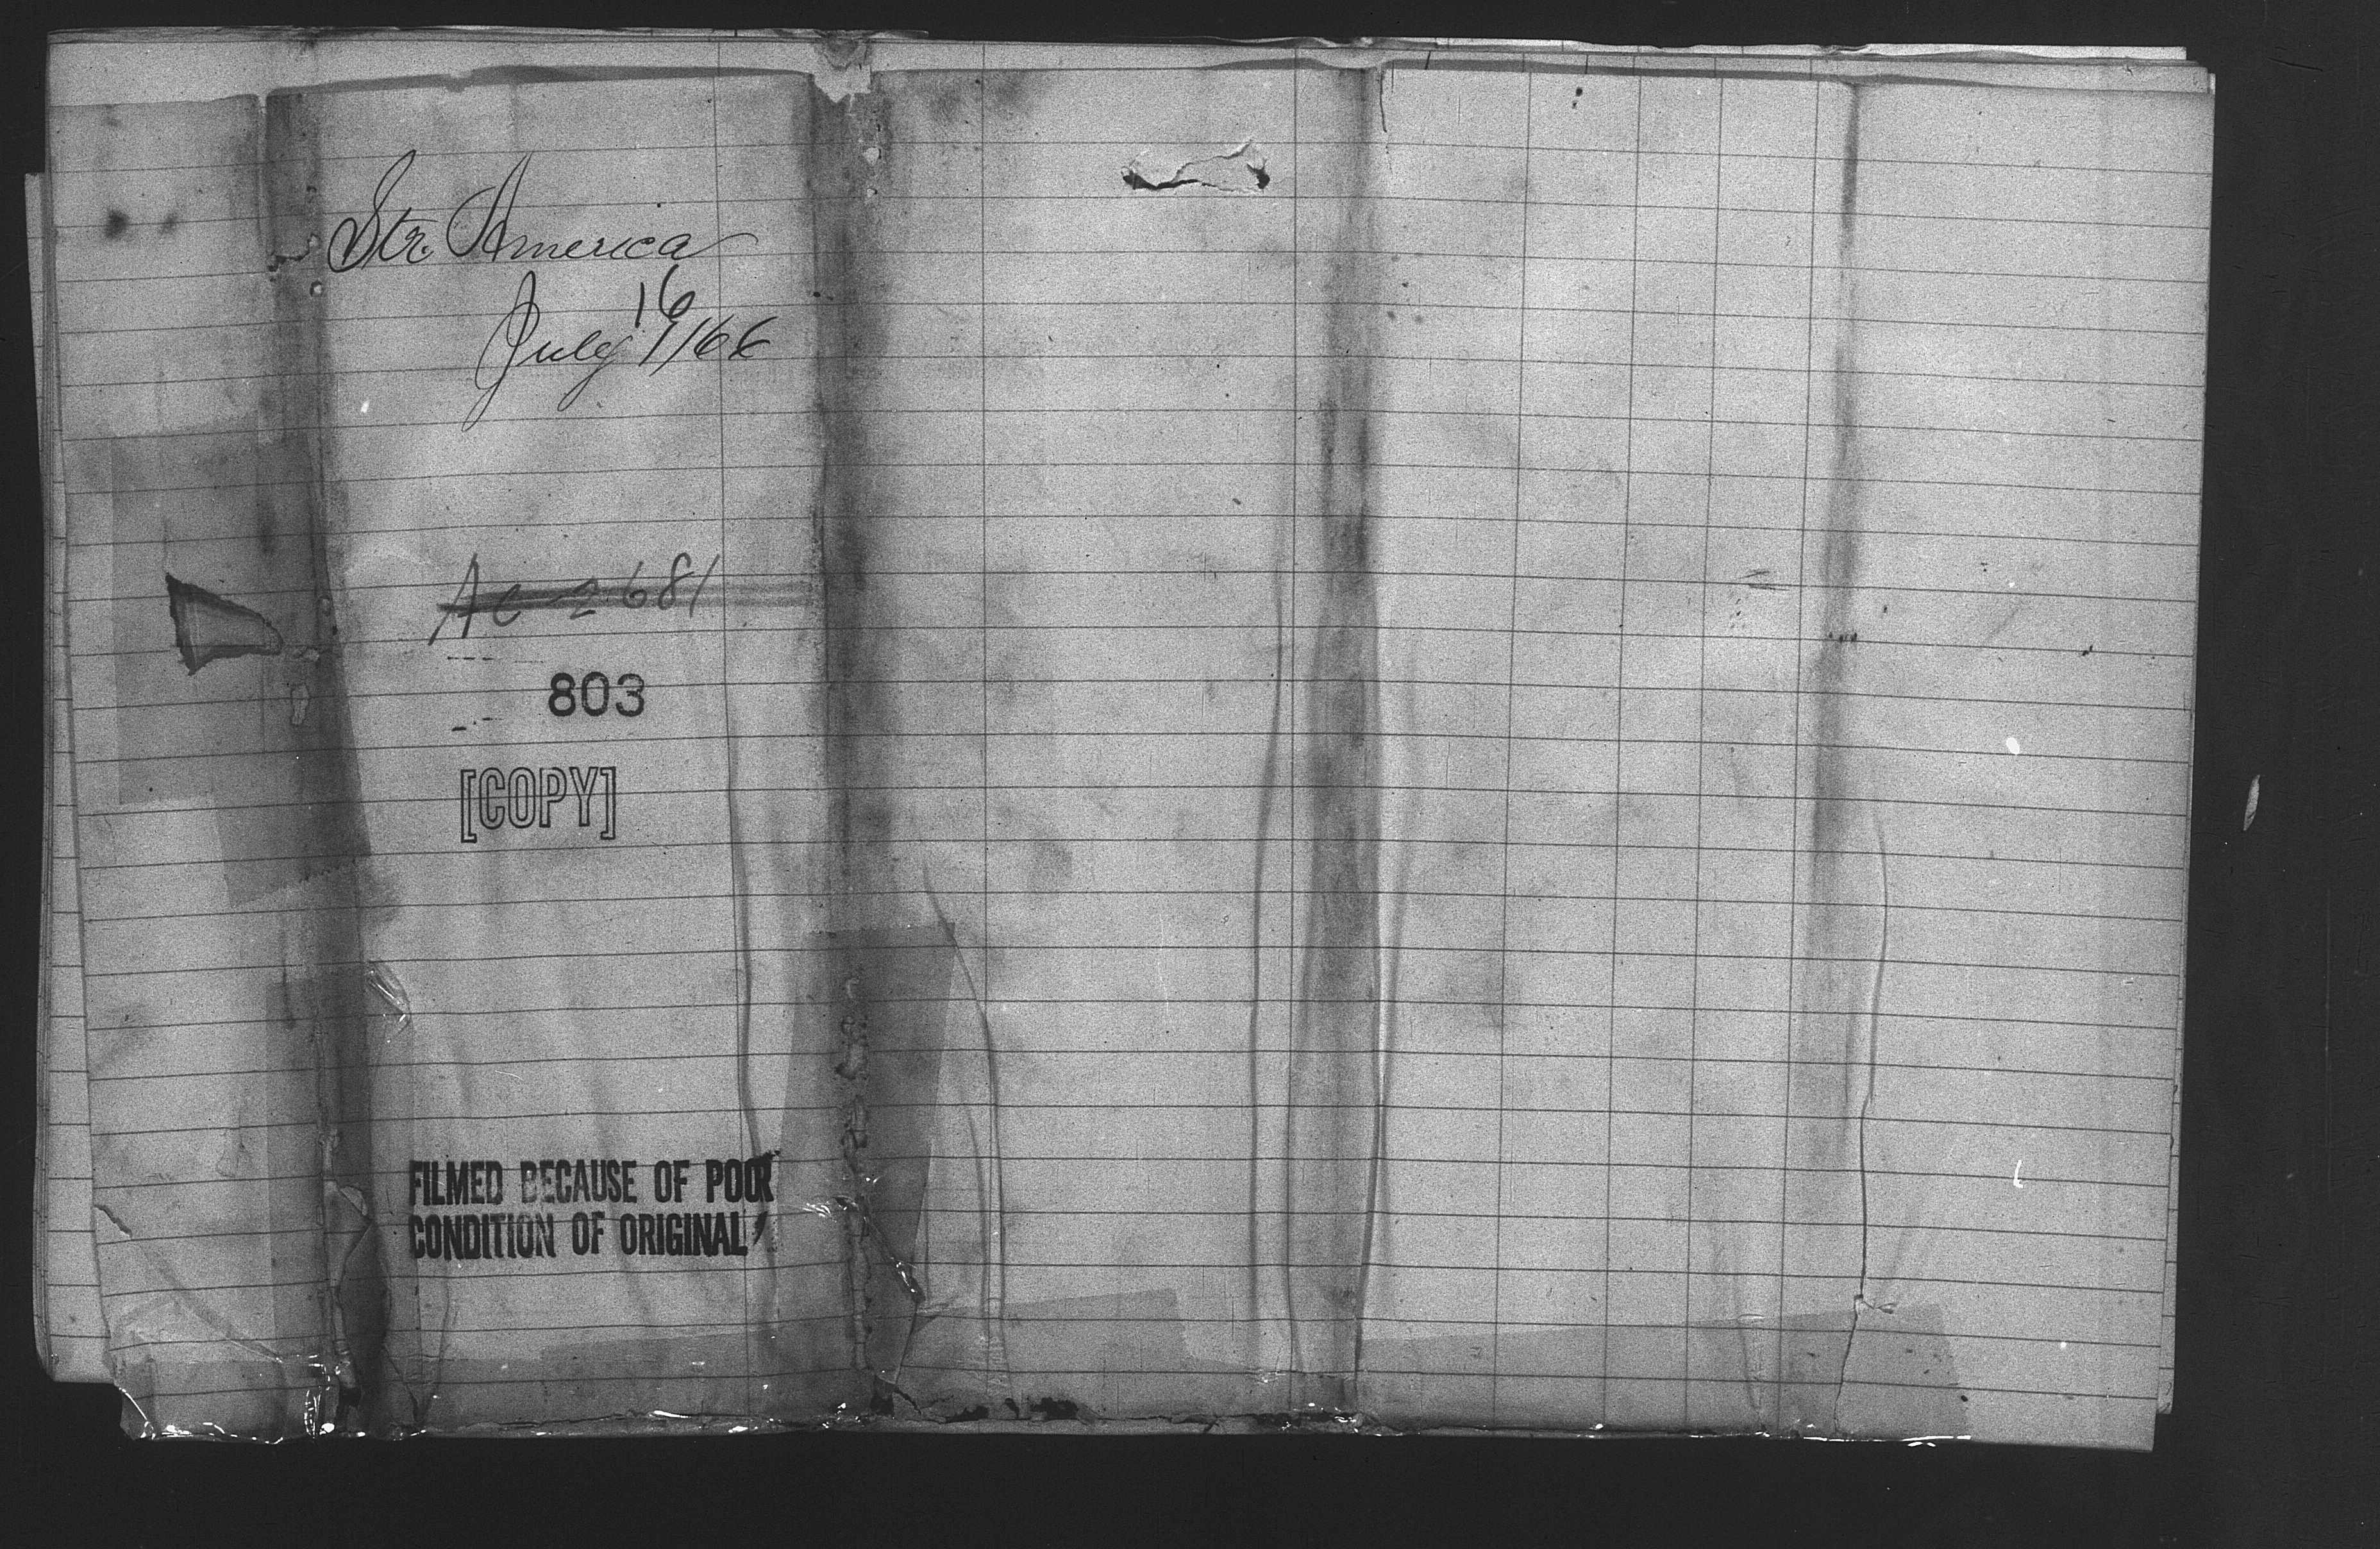 Str. America
16
July 7/66
AC-2681
803
[COPY]
FILMED BECAUSE OF POOR
CONDITION OF ORIGINAL